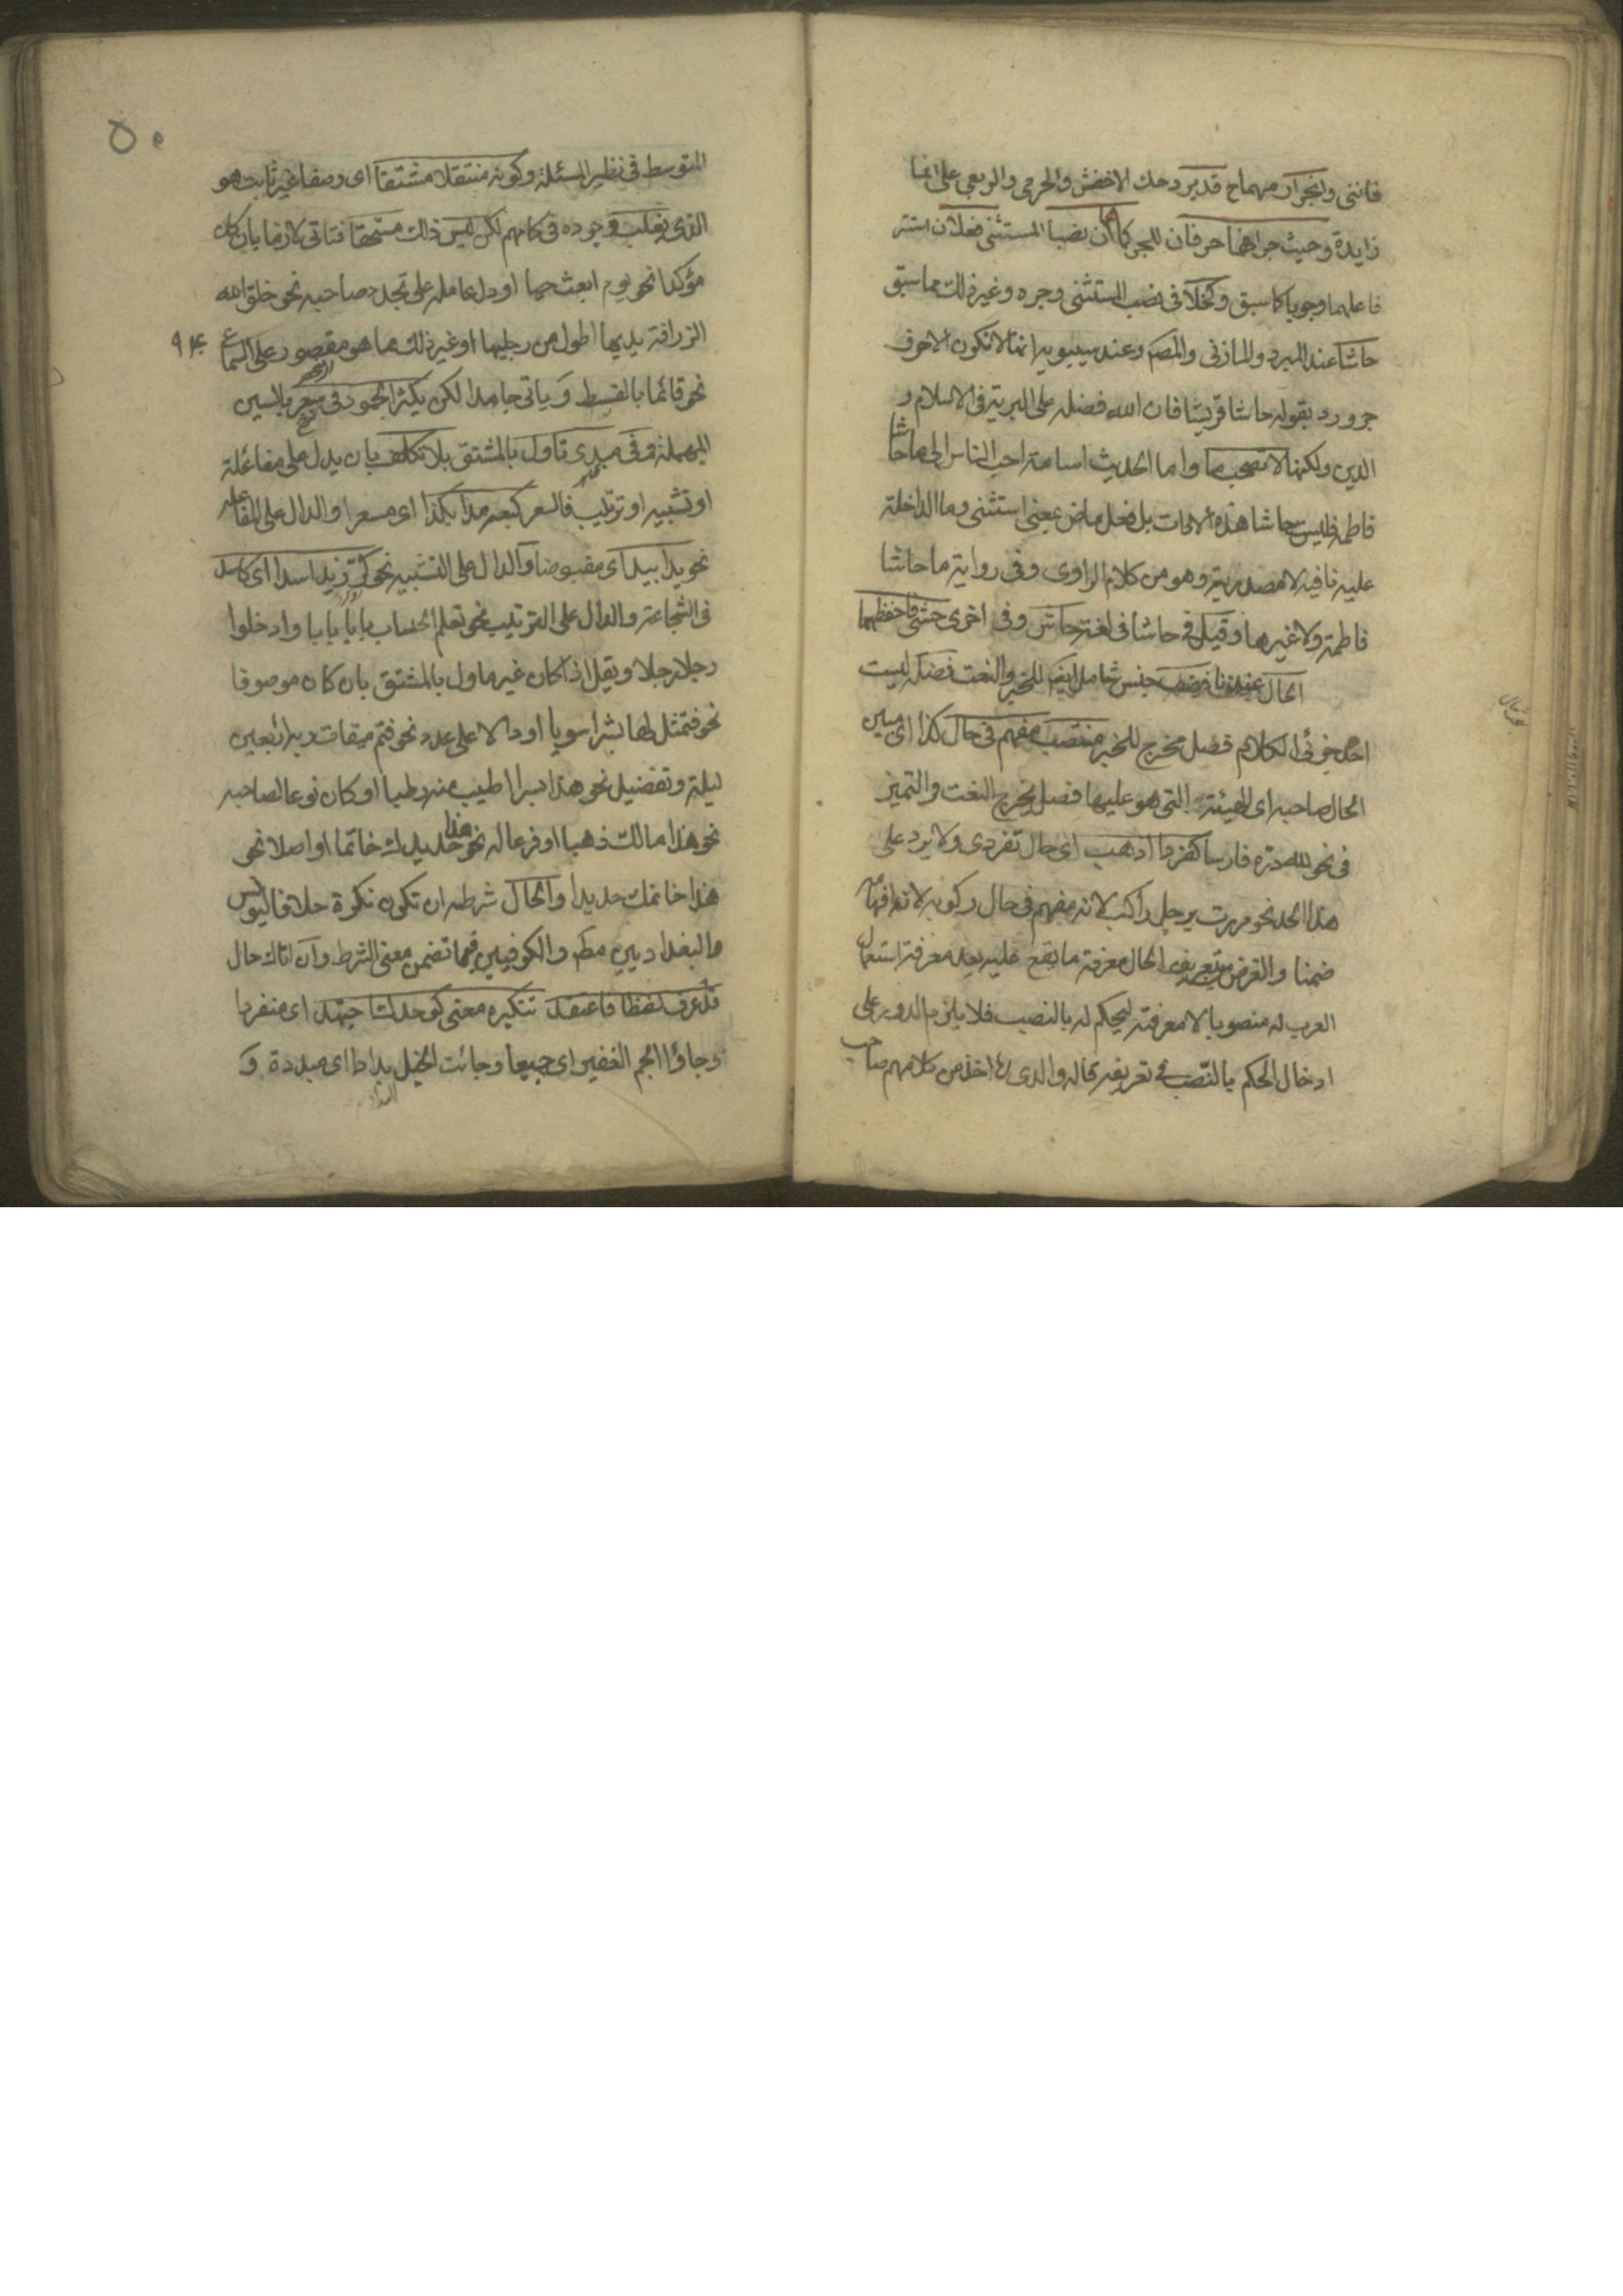 فانني وانجرار بهما ح قد يرد حك الاخفش والجرمي والربعي على انها
زايدة وحيث جرا فهما حرفان للجر كما هما ان نصبا المستثنى فعلان استتر
فاعلهما وجوبا كما سبق وكخلا في نصب المستثنى وجره وغير ذلك مما سبق
حاشا عند المبرد والمازني والمصم وعند سيبويه انها لا تكون الا حرف
جر ورد بقوله حاشا قريشا فان الله فضله على البرية في الاسلام و
الدين ولكنها لا تصحب ما واما الحديث اسامة احب الناس الى ما حاشا
فاطمة فليس حاشا هذه الادات بل فعل ماض بمعنى استثنى وما الداخلة
عليه نافية لا مصدرية وهو من كلام الراوي وفي رواية ما حاشا
فاطمة ولا غيرها وقيل في حاشا في لغة حاش وفي اخرى حشى فاحفظهما
الحال عندنا وصف جنس شامل ايضم للخبر والنعت فضلة ليست
احد جزئي الكلام فصل مخرج للخبر منتصب مفهم في حال كذا اي مبين
الحال صاحبه اي الهيئة التي هو عليها فصل يخرج النعت والتميز
في نحو لله دره فارسا كفردا اذهب اي حال تفردي ولا يرد على
هذا الحد نحو مررت برجل راكب لانه مفهم في حال ركوبه لان افهامه
ضمنا والغرض بتعريف الحال معرفة ما يقع عليه بعد معرفة استعمال
العرب له منصوبا لا معرفته ليحكم له بالنصب فلا يلزم الدور على
ادخال الحكم بالنصب في تعريفه قاله والدي اخذ من كلامهم صاحب
٥٠
المتوسط في نظير المسئلة وكونه منتقلا مشتقا اي وصفا غير ثابت هو
الذي يغلب وجوده في كلامهم لكن ليس ذلك مستحقا فتاتي لازما بان كان
مؤكدا نحو يوم ابعث حيا او دل عامله على تجدد صاحبه نحو خلق الله
الزرافة يديها اطول من رجليها او غير ذلك مما هو مقصور على السماع
نحو قائما بالقسط وياتي جامدا لكن يكثر الجمود في سعر بالسين
المهملة وفي مبدي تاول بالمشتق بلا تكلف بان يدل على مفاعلة
او تشبيه او ترتيب فالسعر كبعه مدا بكذا اي مسعرا والدال على المفاعلة
نحو يدا بيد اي مقبوضا والدال على التشبيه نحو كر زيد اسدا اي كاسد
في الشجاعة والدال على الترتيب نحو تعلم الحساب بابا بابا وادخلوا
رجلا رجلا ويقل اذا كان غير ماول بالمشتق بان كان موصوفا
نحو فتمثل لها بشرا سويا او دالا على عدد نحو فتم ميقات ربه اربعين
ليلة وتفضيل نحو هذا بسرا اطيب منه رطبا او كان نوعا لصاحبه
نحو هذا مالك ذهبا او فرعا له نحو هذا حديدك خاتما او اصلا نحو
هذا خاتمك حديدا والحال شرطه ان تكون نكرة خلافا ليونس
والبغداديين مطم والكوفيين فيما تضمن معنى الشرط وان اتاك حال
قد عرف لفظا فاعتقد تنكيره معنى كوحدك اجتهد اي منفردا
وجاؤا الجم الغفير اي جميعا وجائت الخيل بداد اي مبددة و